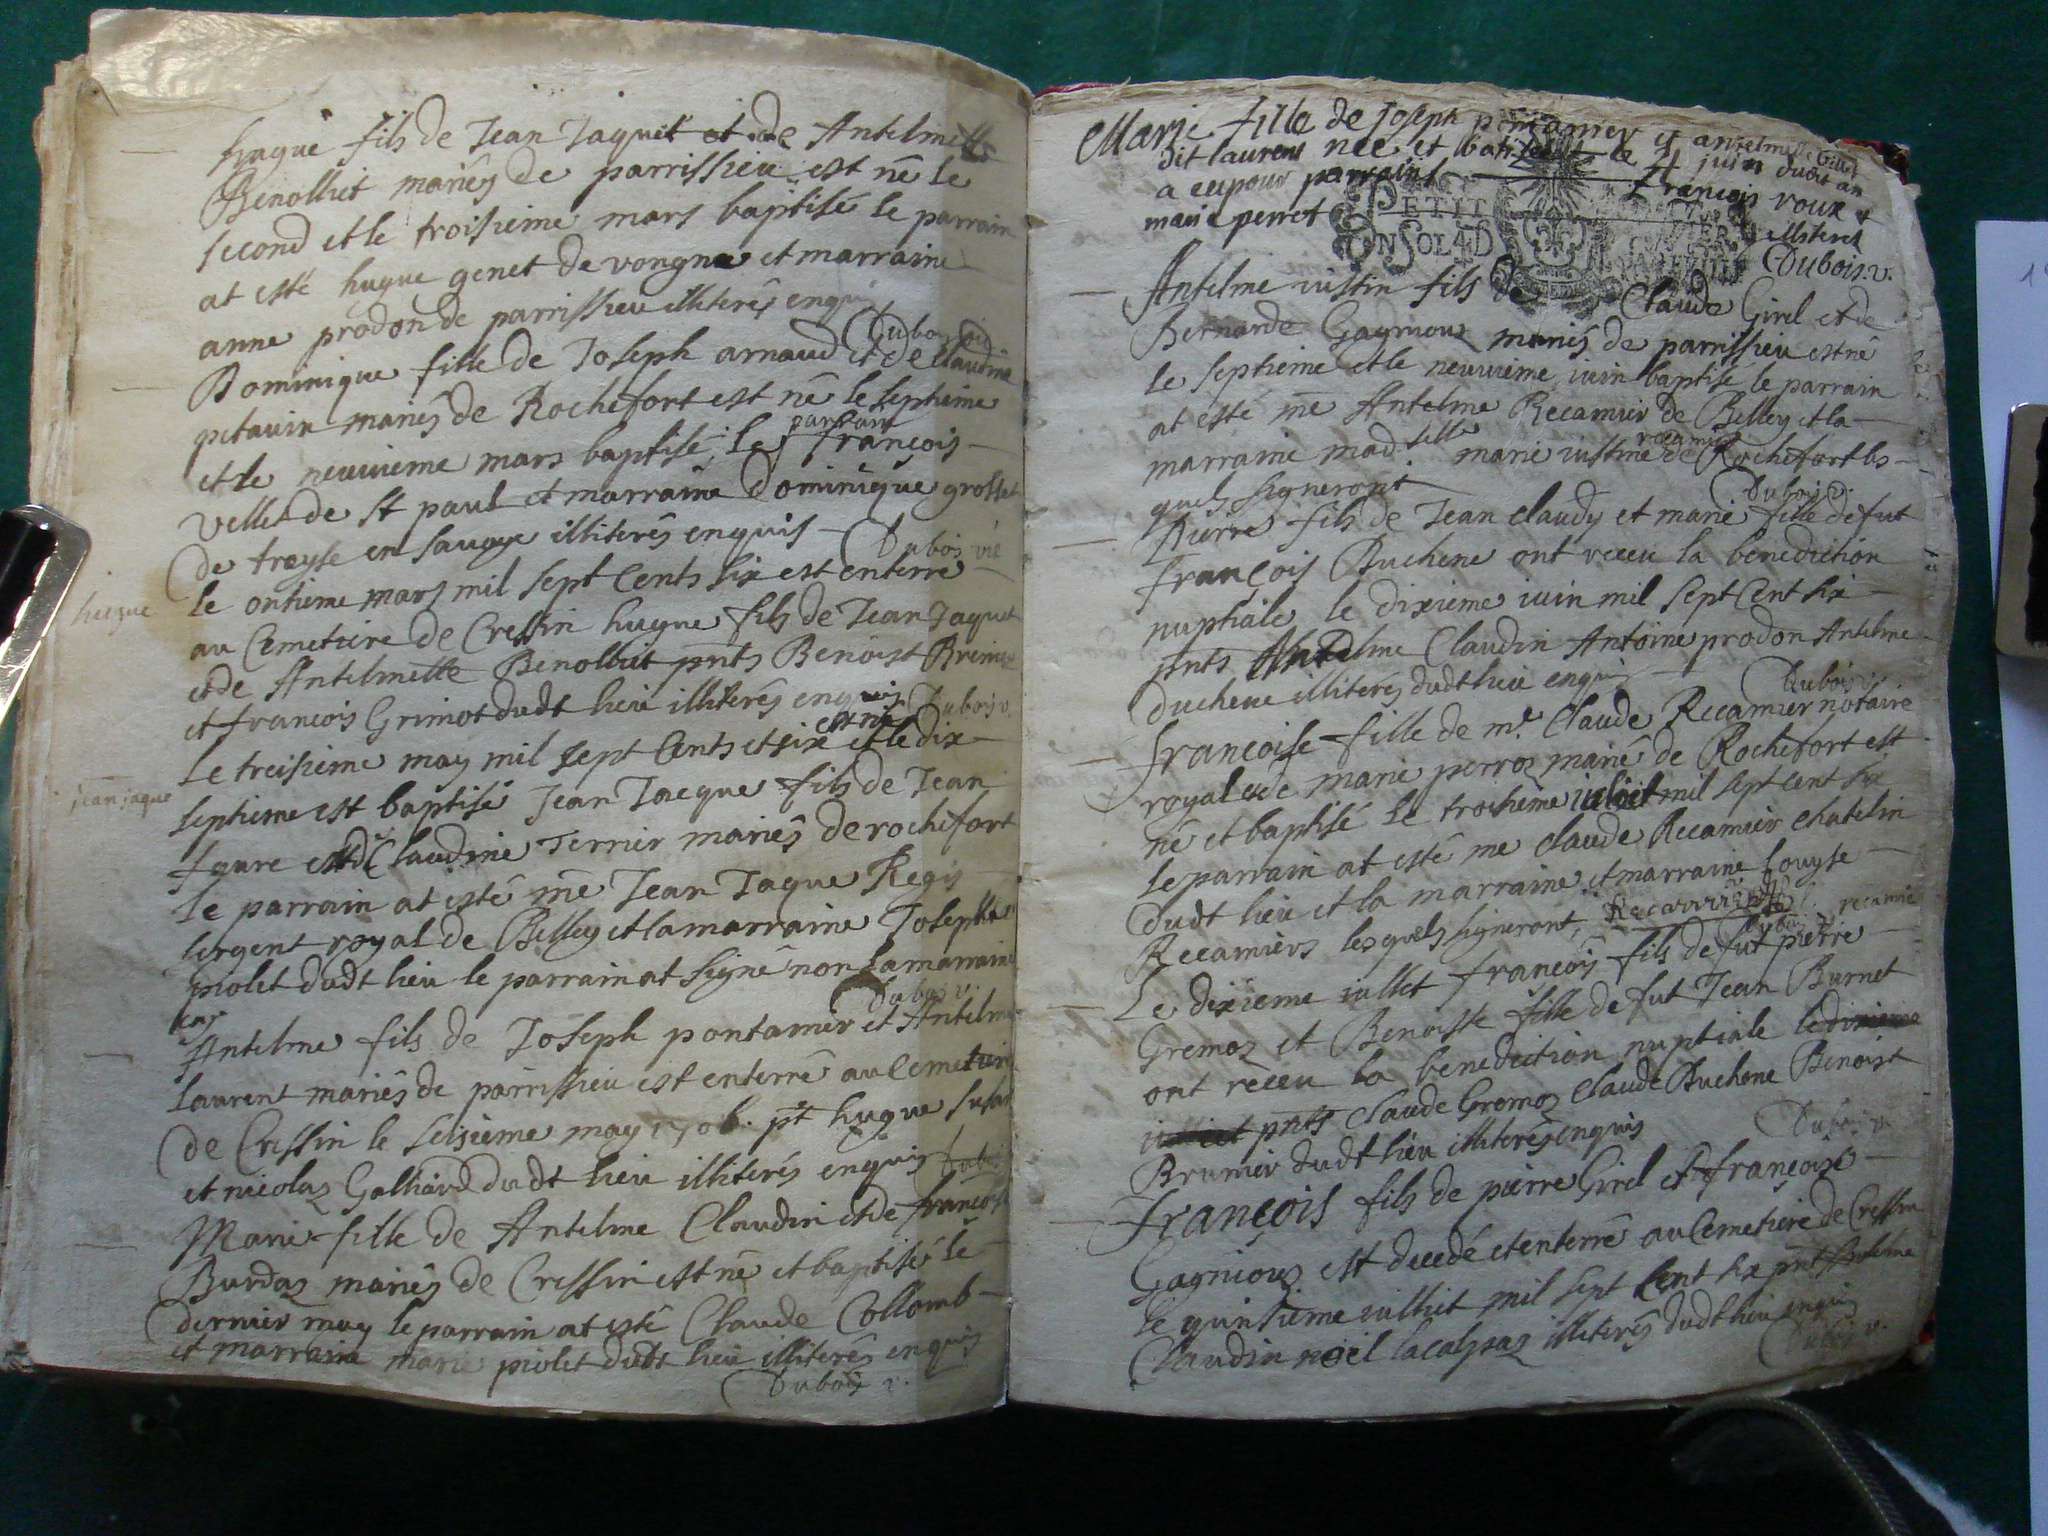 huguë fils de Jean Jaquet et de Antelmette
Benolliet mariés de parrissieu est né le
second et le troisieme mars baptisé le parrain
at esté hugue genet de vongne et marraine
anne prodon de parrissieu illiterés enquis
Dubois vic
Dominique fille de Joseph arnaud et de Claudine
pitavin mariés de Rochefort est né le septieme
et le neuvieme mars baptisé, le parrain françois
vellet de st paul et marraine Dominique grosset
de troyse en savoye illiterés enquis Dubois vic
hugue
le onsieme mars mil sept cents six est enterré
au Cemetiere de Cressin hugue fils de Jean Jaquet
et de Antelmette Benolliet pnts Benoist Brimier
et francois Grimot dudt lieu illiterés enquis Dubois v.
Le treisieme may mil sept cents et six est né et le dix
jean jaque
septieme est baptisé Jean Jacque fils de Jean
faure et de Claudine Ternier mariés de rochefort
le parrain at esté me Jean Jaque Regis
sergent royal de Belley et la marraine Josephte
piolet dudt lieu le parrain at signé non la marraine
Dubois v.
Antelme fils de Joseph pontamier et Antelme
laurent mariés de parrissieu est enterré au Cemetiere
de Cressin le seisieme may 1706. pt hugue
et nicolas Galliard dudt lieu illiterés enquis Dubois
Marie fille de Antelme Claudin et de françoise
Burdoz mariés de Cressin est né et baptisé le
dernier may le parrain at esté Claude Collomb
et marraine marie piolet dudt lieu illiterés enquis
Dubois v.
Marie fille de Joseph pontamier et antelmette
dit laurens née et batisée le 4 juin dudit an
a eu pour parrain francois roux &
marie perret illiteres
Dubois. v.
PETIT
EN SOL 4 D
Antelme iustin fils de Claude Girel et de
Bernarde Gagnioux mariés de parrissieu est né
le septieme et le neuvieme iuin baptisé le parrain
at esté me Antelme Recamier de Belley et la
marraine madselle marie iustine recamier de Rochefort les
quels signeront
Dubois v.
Pierre fils de Jean claudy et marie fille de fut
françois Duchene ont receu la benediction
nuptiale le dixieme iuin mil sept Cent six
pnts Antelme Claudin Antoine prodon Antelme
Duchene illiterés dudt lieu enquis
Dubois v.
françoise fille de me. Claude Recamier notaire
royal et de marie perroz marié de Rochefort est
né et baptisé le troisieme iuliet mil sept cent six
le parrain at esté me claude Recamier chatelin
dudt lieu et la marraine et marraine Louyse
Recamiers lesquels signeront, Recamier recamie
Dubois v.
Le dixieme iulliet françois fils de fut pierre
Gremoz et Benoiste fille de fut Jean Burnet
ont receu la benediction nuptiale le dixieme
iulliet pnts Claude Gremoz Claude Duchene Benoist
Brumier dudt lieu illiterés enquis
Dubois v.
françois fils de pierre Girel et françoise
Gagnioux est decedé et enterré au Cemetiere de Cressin
le quinsieme iulliet mil sept Cent six pnt Antelme
Claudin noel lacalpaz illiterés dudt lieu enquis
Dubois v.